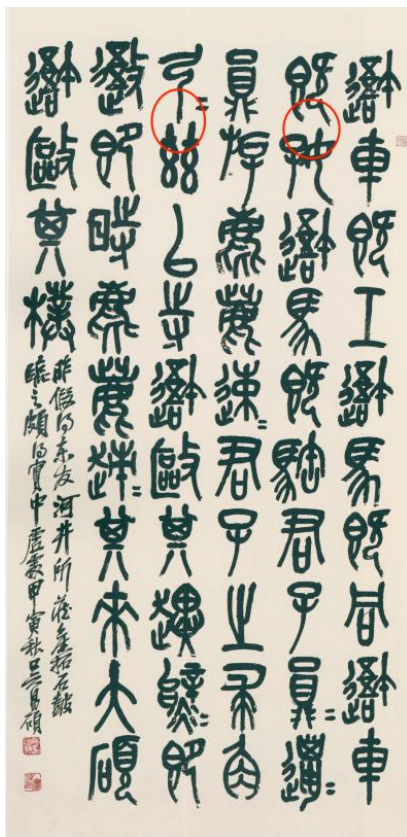 避車既工避馬既同避車
既好避馬既駓君子員=邋=
員斿麀鹿速=君子之求角
弓=茲以寺避敺其即
即時麀鹿趚=其來大
避敺其樸
昨假得東友河井所藏舊拓石鼓
臨之頗得實中虛處甲寅秋吳昌碩